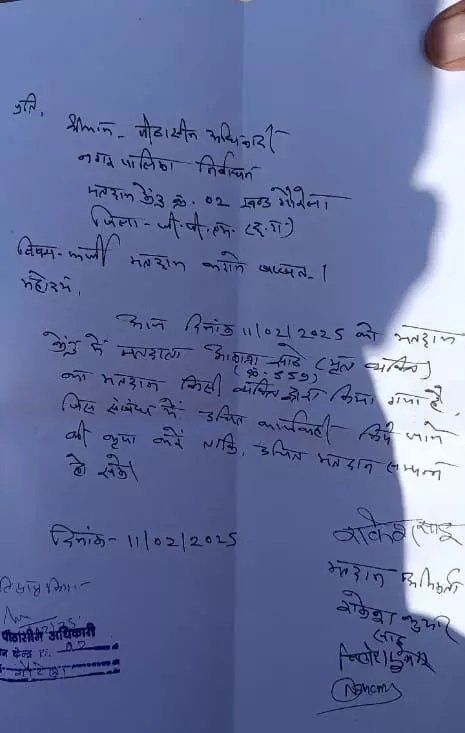 प्रति,
श्रीमान - पीठासीन अधिकारी
नगर पालिका निर्वाचन
मतदान केंद्र क्र. 02 खण्ड गौरेला
जिला - जी.पी.एम. (छ.ग.)
विषय - फर्जी मतदान करने बाबत् ।
महोदय,
आज दिनांक 11/02/2025 को मतदान
केंद्र में मतदाता साहू (मृत व्यक्ति)
(क्र. 559)
का मतदान किसी व्यक्ति द्वारा किया गया है,
जिस संबंध में उचित कार्यवाही किये जाने
की कृपा करें ताकि, उचित मतदान सम्पन्न
हो सके।
दिनांक - 11/02/2025
राकेश साहू
मतदान अभिकर्ता
राकेश कुमार
साहू
पीठासीन अधिकारी
केन्द्र 02
गौरेला